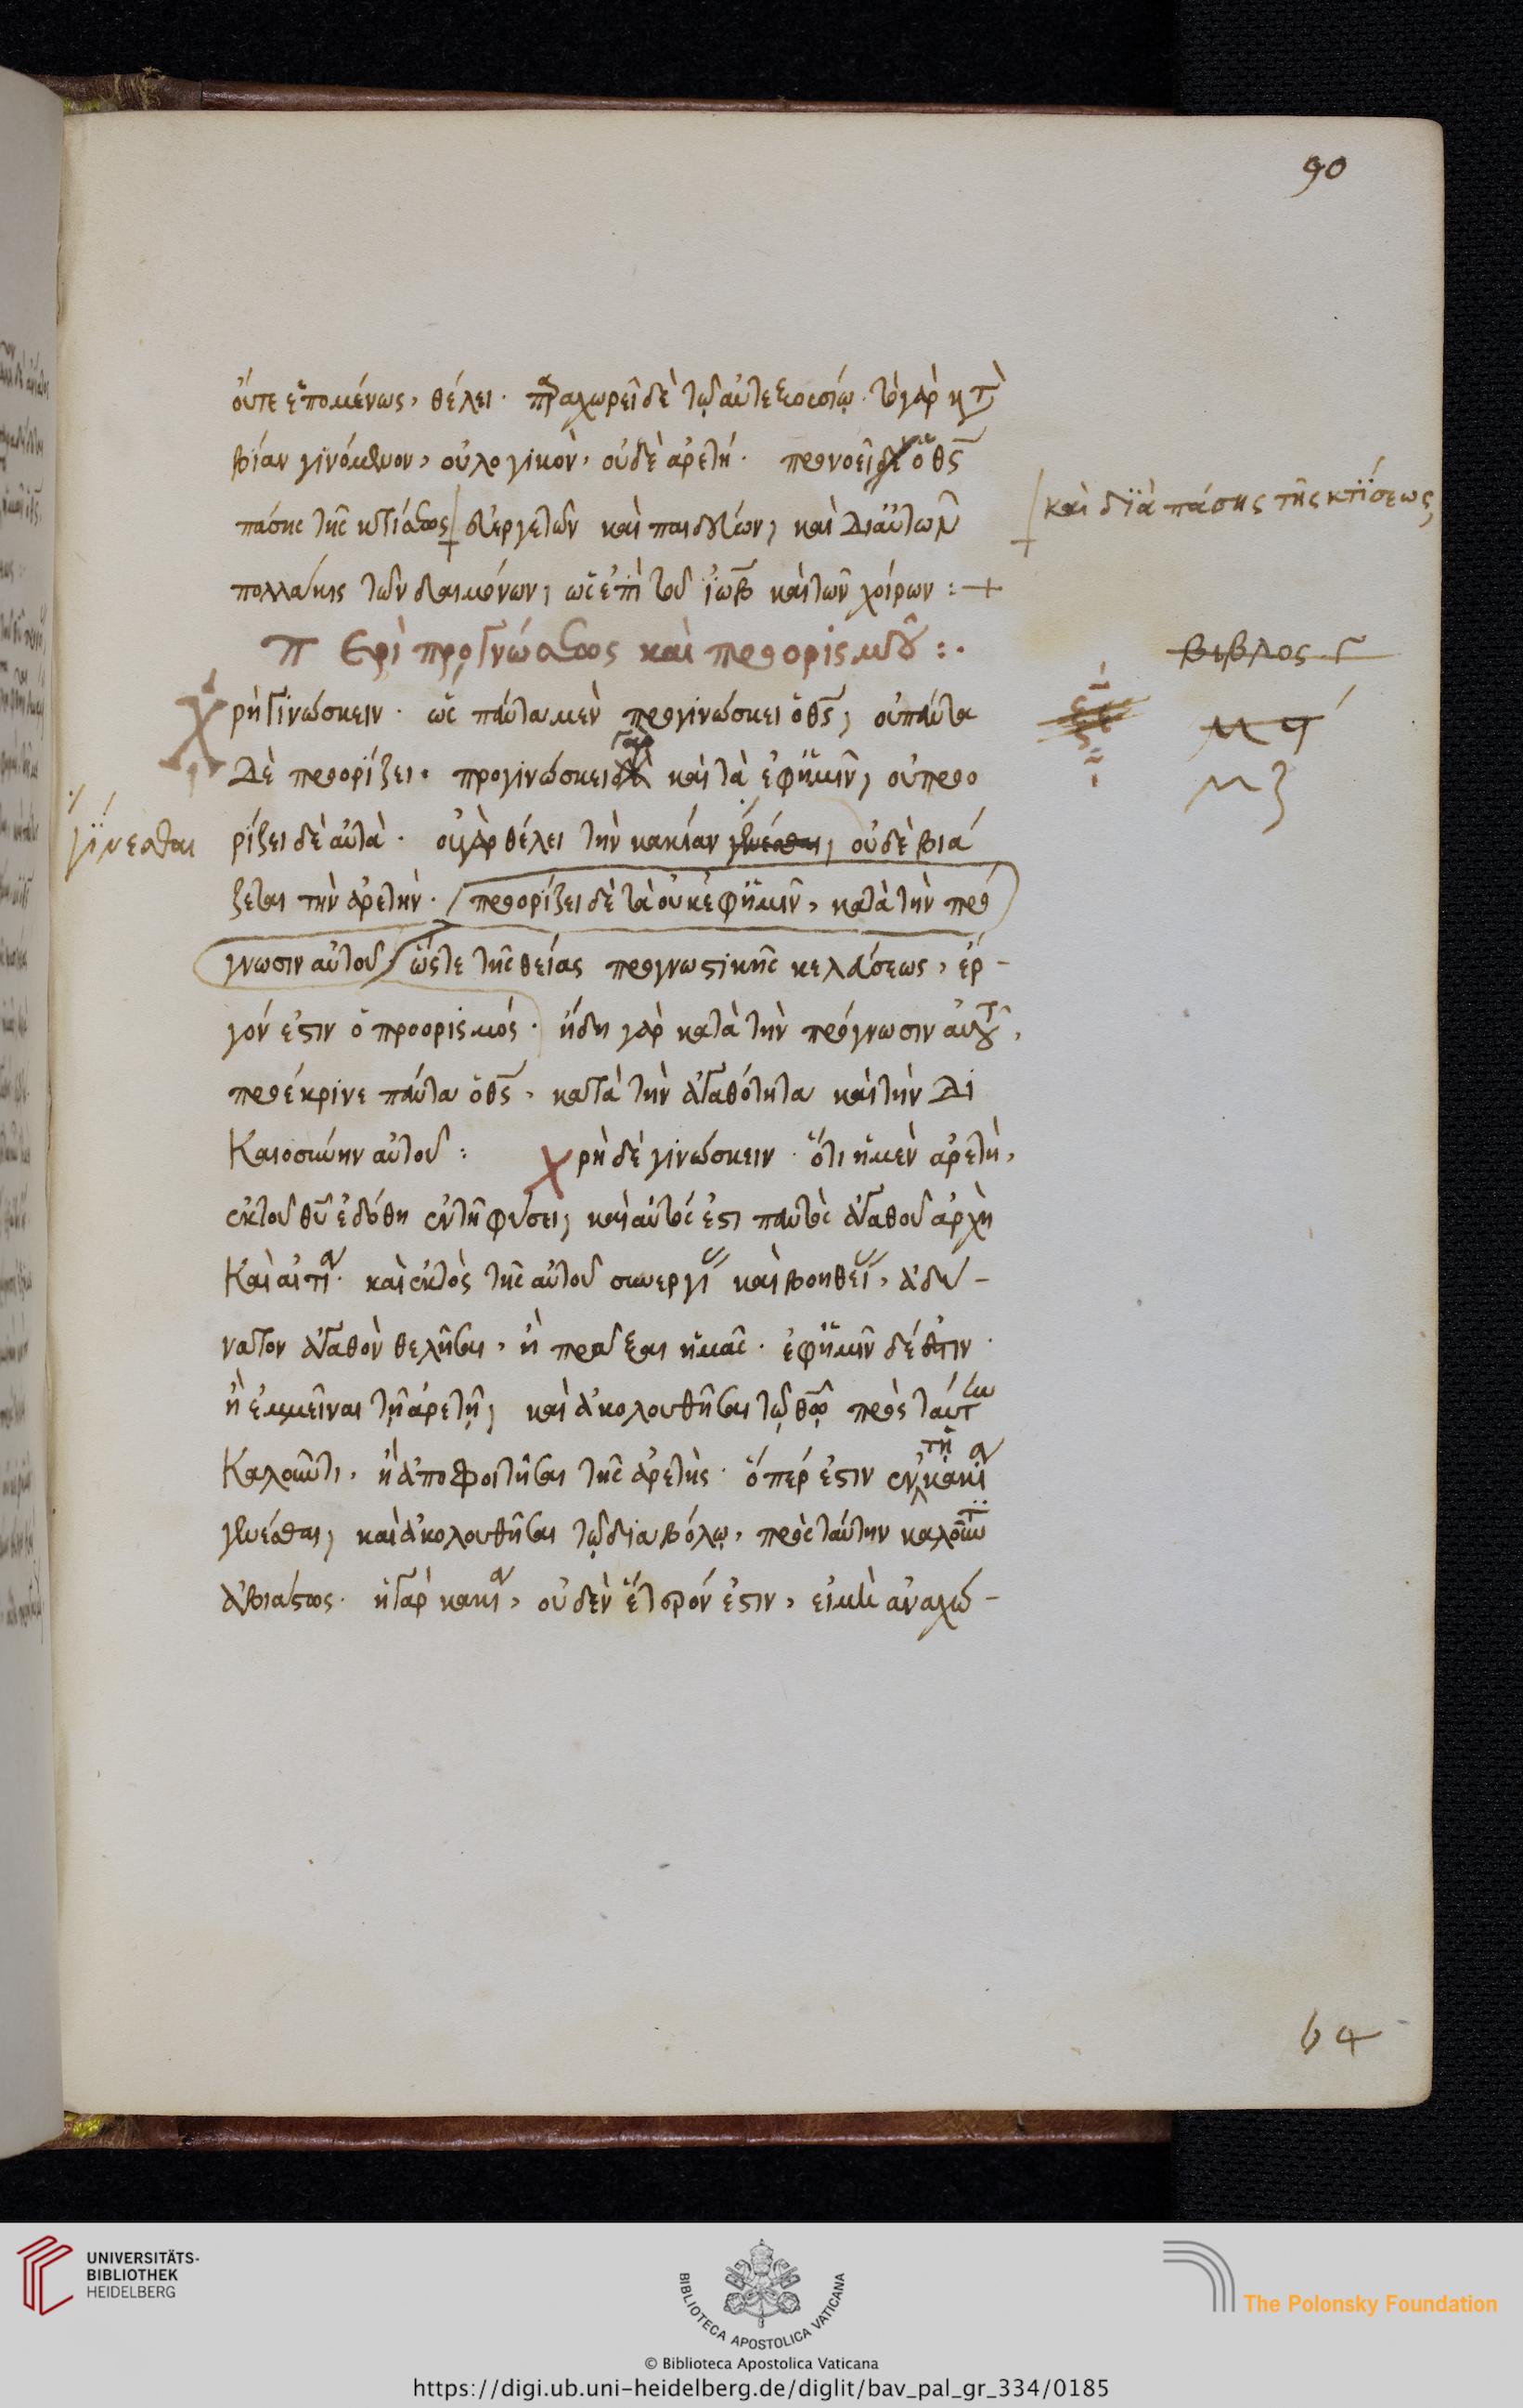 90
οὔτε ἑπομένως, θέλει· παραχωρεῖ δὲ τῷ αὐτεξουσίῳ· τὸ γὰρ κατὰ
βίαν γινόμενον, οὐ λογικὸν, οὐδὲ ἀρετή· προνοεῖ δὲ ὁ θς
πάσης τῆς κτίσεως εὐεργετῶν καὶ παιδεύων, καὶ δι' αὐτῶν
καὶ διὰ πάσης τῆς κτίσεως
πολλάκις τῶν δαιμόνων, ὡς ἐπὶ τοῦ ἰὼβ καὶ τῶν χοίρων :+
Περὶ προγνώσεως καὶ προορισμοῦ :·
βιβλος Γ
Χρὴ γινώσκειν· ὡς πάντα μὲν προγινώσκει ὁ θς, οὐ πάντα
γὰρ
δὲ προορίζει· προγινώσκει καὶ τὰ ἐφ' ἡμῖν, οὐ προο
γίνεσθαι
ρίζει δὲ αὐτὰ· οὐ γὰρ θέλει τὴν κακίαν γενέσθαι, οὐδὲ βιά
ζεται τὴν ἀρετήν· προορίζει δὲ τὰ οὐκ ἐφ' ἡμῖν, κατὰ τὴν πρό
γνωσιν αὐτοῦ ὥστε τῆς θείας προγνωστικῆς κελεύσεως, ἔρ-
γόν ἐστιν ὁ προορισμός· ἤδη γὰρ κατὰ τὴν πρόγνωσιν αὐτοῦ,
προέκρινε πάντα ὁ θς, κατὰ τὴν ἀγαθότητα καὶ τὴν δι
καιοσύνην αὐτοῦ : χρὴ δὲ γινώσκειν· ὅτι ἡ μὲν ἀρετὴ,
ἐκ τοῦ θυ ἐδόθη ἐν τῇ φύσει, καὶ αὐτός ἐστι παντὸς ἀγαθοῦ ἀρχὴ
καὶ αἰτία· καὶ ἐκτὸς τῆς αὐτοῦ συνεργίας καὶ βοηθείας, ἀδύ-
νατον ἀγαθὸν θελῆσαι, ἢ πρᾶξαι ἡμᾶς· ἐφ' ἡμῖν δέ ἐστιν·
ἢ ἐμμεῖναι τῇ ἀρετῇ, καὶ ἀκολουθῆσαι τῷ θεῷ πρὸς ταύτην
καλοῦντι, ἢ ἀποφοιτῆσαι τῆς ἀρετῆς· ὅπερ ἐστὶν ἐν τῇ κακίᾳ
γενέσθαι, καὶ ἀκολουθῆσαι τῷ διαβόλῳ, πρὸς ταύτην καλοῦντι
ἀβιάστως· ἡ γὰρ κακία, οὐδὲν ἕτερόν ἐστιν, εἰ μὴ ἀναχώ-
64
UNIVERSITÄTS-
BIBLIOTHEK
HEIDELBERG
BIBLIOTECA APOSTOLICA VATICANA
The Polonsky Foundation
© Biblioteca Apostolica Vaticana
https://digi.ub.uni-heidelberg.de/diglit/bav_pal_gr_334/0185